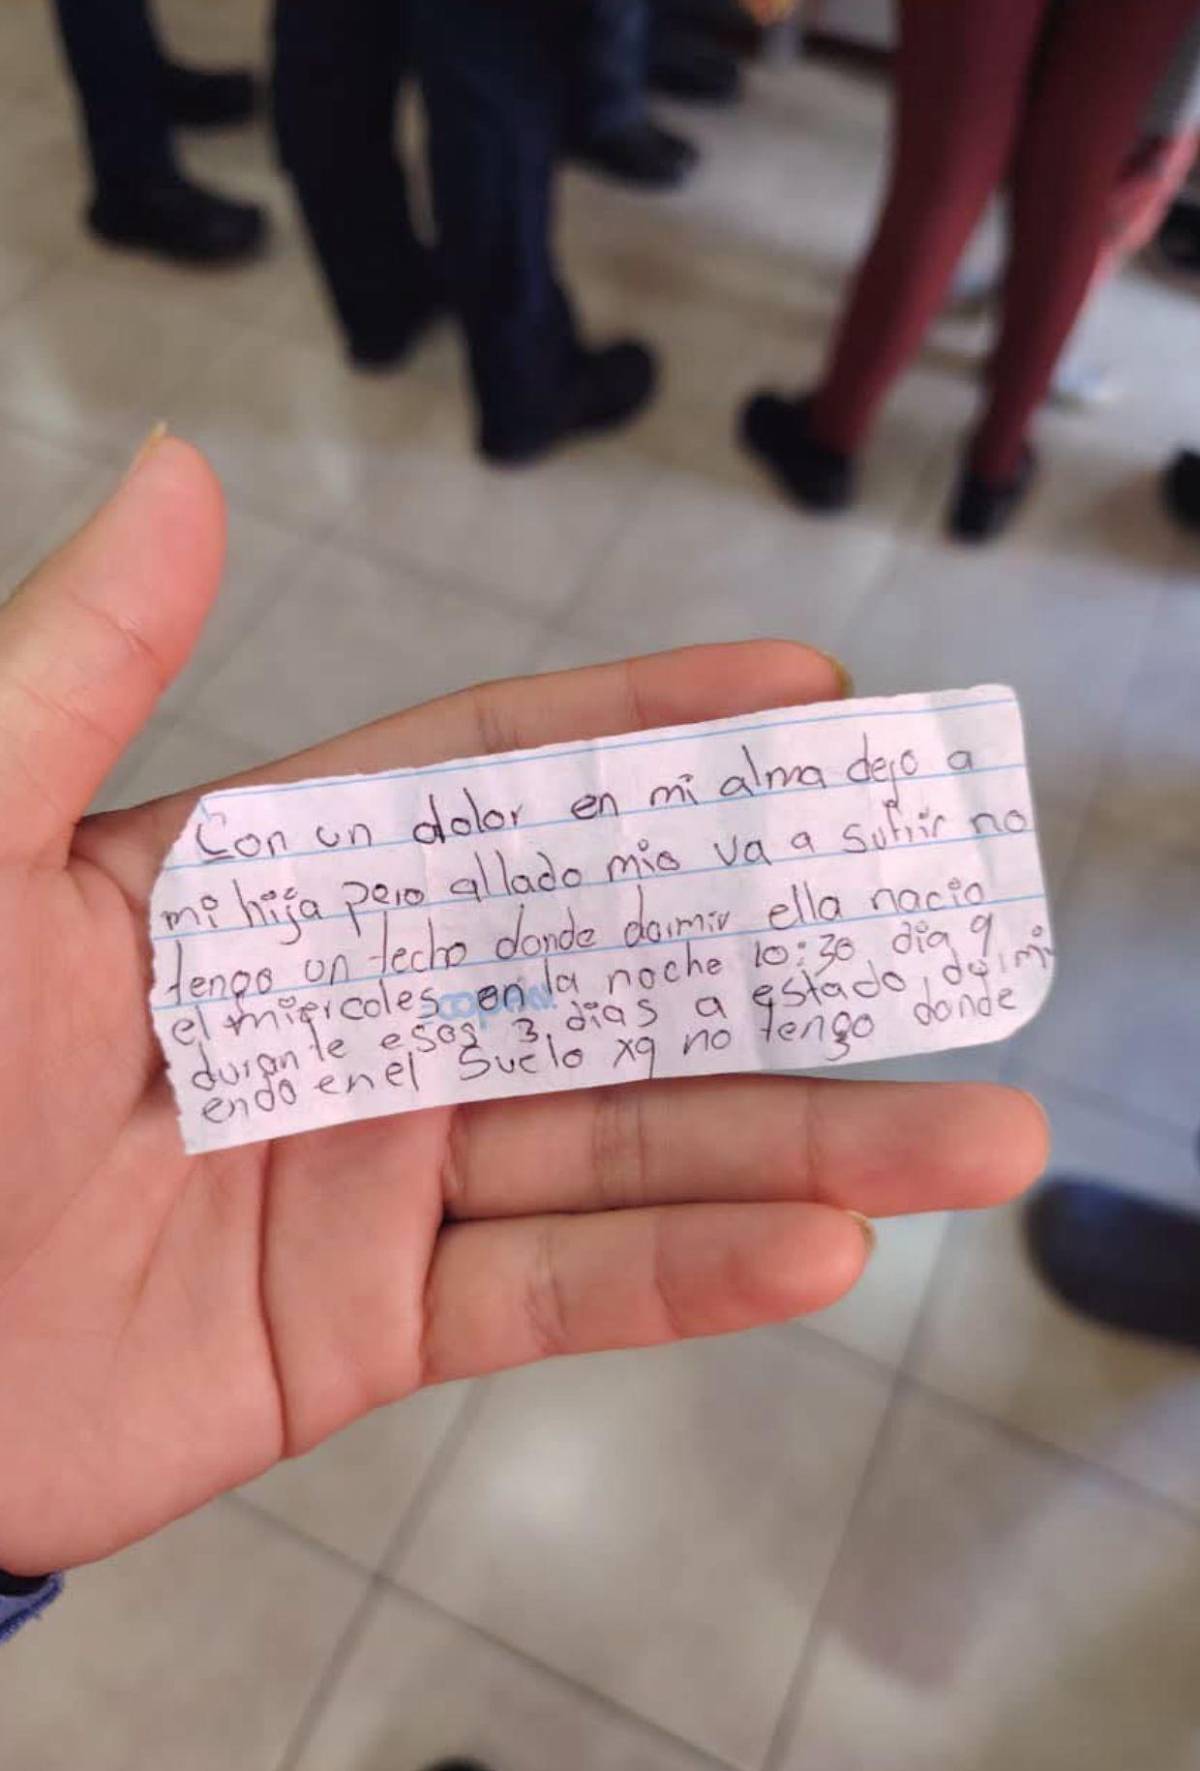 Con un dolor en mi alma dejo a
mi hija pero allado mio va a sufrir no
tengo un techo donde dormir ella nacio
el miercoles en la noche 10:30 dia 9
durante esos 3 dias a estado durmi
endo en el suelo xq no tengo donde